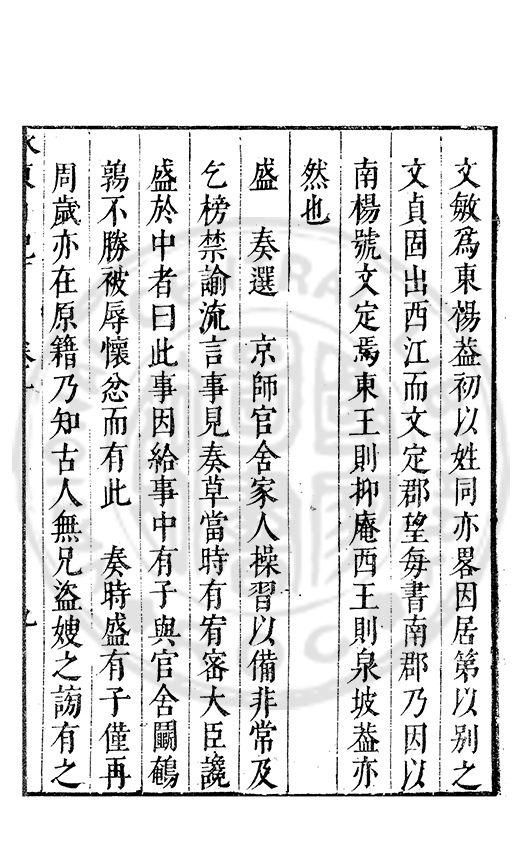 文敏爲東楊葢初以姓同亦畧因居第以别之
文貞固出西江而文定郡望每書南郡乃因以
南楊號文定焉東王則抑庵西王則泉坡葢亦
然也
盛　奏選　京師官舍家人操習以備非常及
乞榜禁諭流言事見奏草當時有宥密大臣讒
盛於中者曰此事因給事中有子與官舍鬭鵪
鶉不勝被辱懷忿而有此　奏時盛有子僅再
周歲亦在原籍乃知古人無兄盜嫂之謗有之